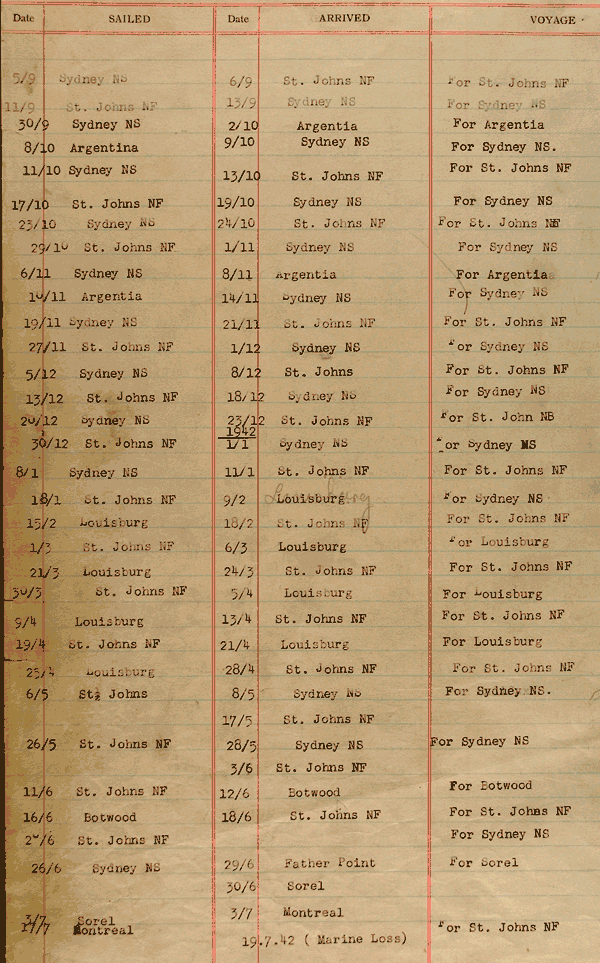 Date SAILED Date ARRIVED VOYAGE
5/9 Sydney NS 6/9 St. Johns NF For St. Johns NF
11/9 St. Johns NF 13/9 Sydney NS For Sydney NS
30/9 Sydney NS 2/10 Argentia For Argentia
8/10 Argentina 9/10 Sydney NS For Sydney NS.
11/10 Sydney NS 13/10 St. Johns NF For St. Johns NF
17/10 St. Johns NF 19/10 Sydney NS For Sydney NS
23/10 Sydney NS 24/10 St. Johns NF For St. Johns NF
29/10 St. Johns NF 1/11 Sydney NS For Sydney NS
6/11 Sydney NS 8/11 Argentia For Argentia
10/11 Argentia 14/11 Sydney NS For Sydney NS
19/11 Sydney NS 21/11 St. Johns NF For St. Johns NF
27/11 St. Johns NF 1/12 Sydney NS For Sydney NS
5/12 Sydney NS 8/12 St. Johns For St. Johns NF
13/12 St. Johns NF 18/12 Sydney NS For Sydney NS
20/12 Sydney NS 23/12 St. Johns NF For St. John NB
1942
30/12 St. Johns NF 1/1 Sydney NS For Sydney MS
8/1 Sydney NS 11/1 St. Johns NF For St. Johns NF
18/1 St. Johns NF 9/2 Louisburg For Sydney NS
15/2 Louisburg 18/2 St. Johns NF For St. Johns NF
1/3 St. Johns NF 6/3 Louisburg For Louisburg
21/3 Louisburg 24/3 St. Johns NF For St. Johns NF
30/3 St. Johns NF 5/4 Louisburg For Louisburg
9/4 Louisburg 13/4 St. Johns NF For St. Johns NF
19/4 St. Johns NF 21/4 Louisburg For Louisburg
25/4 Louisburg 28/4 St. Johns NF For St. Johns NF
6/5 St. Johns 8/5 Sydney NS For Sydney NS.
17/5 St. Johns NF
26/5 St. Johns NF 28/5 Sydney NS For Sydney NS
3/6 St. Johns NF
11/6 St. Johns NF 12/6 Botwood For Botwood
16/6 Botwood 18/6 St. Johns NF For St. Johns NF
St. Johns NF For Sydney NS
26/6 Sydney NS 29/6 Father Point For Sorel
30/6 Sorel
3/7 Sorel 3/7 Montreal
Montreal For St. Johns NF
19.7.42 ( Marine Loss)